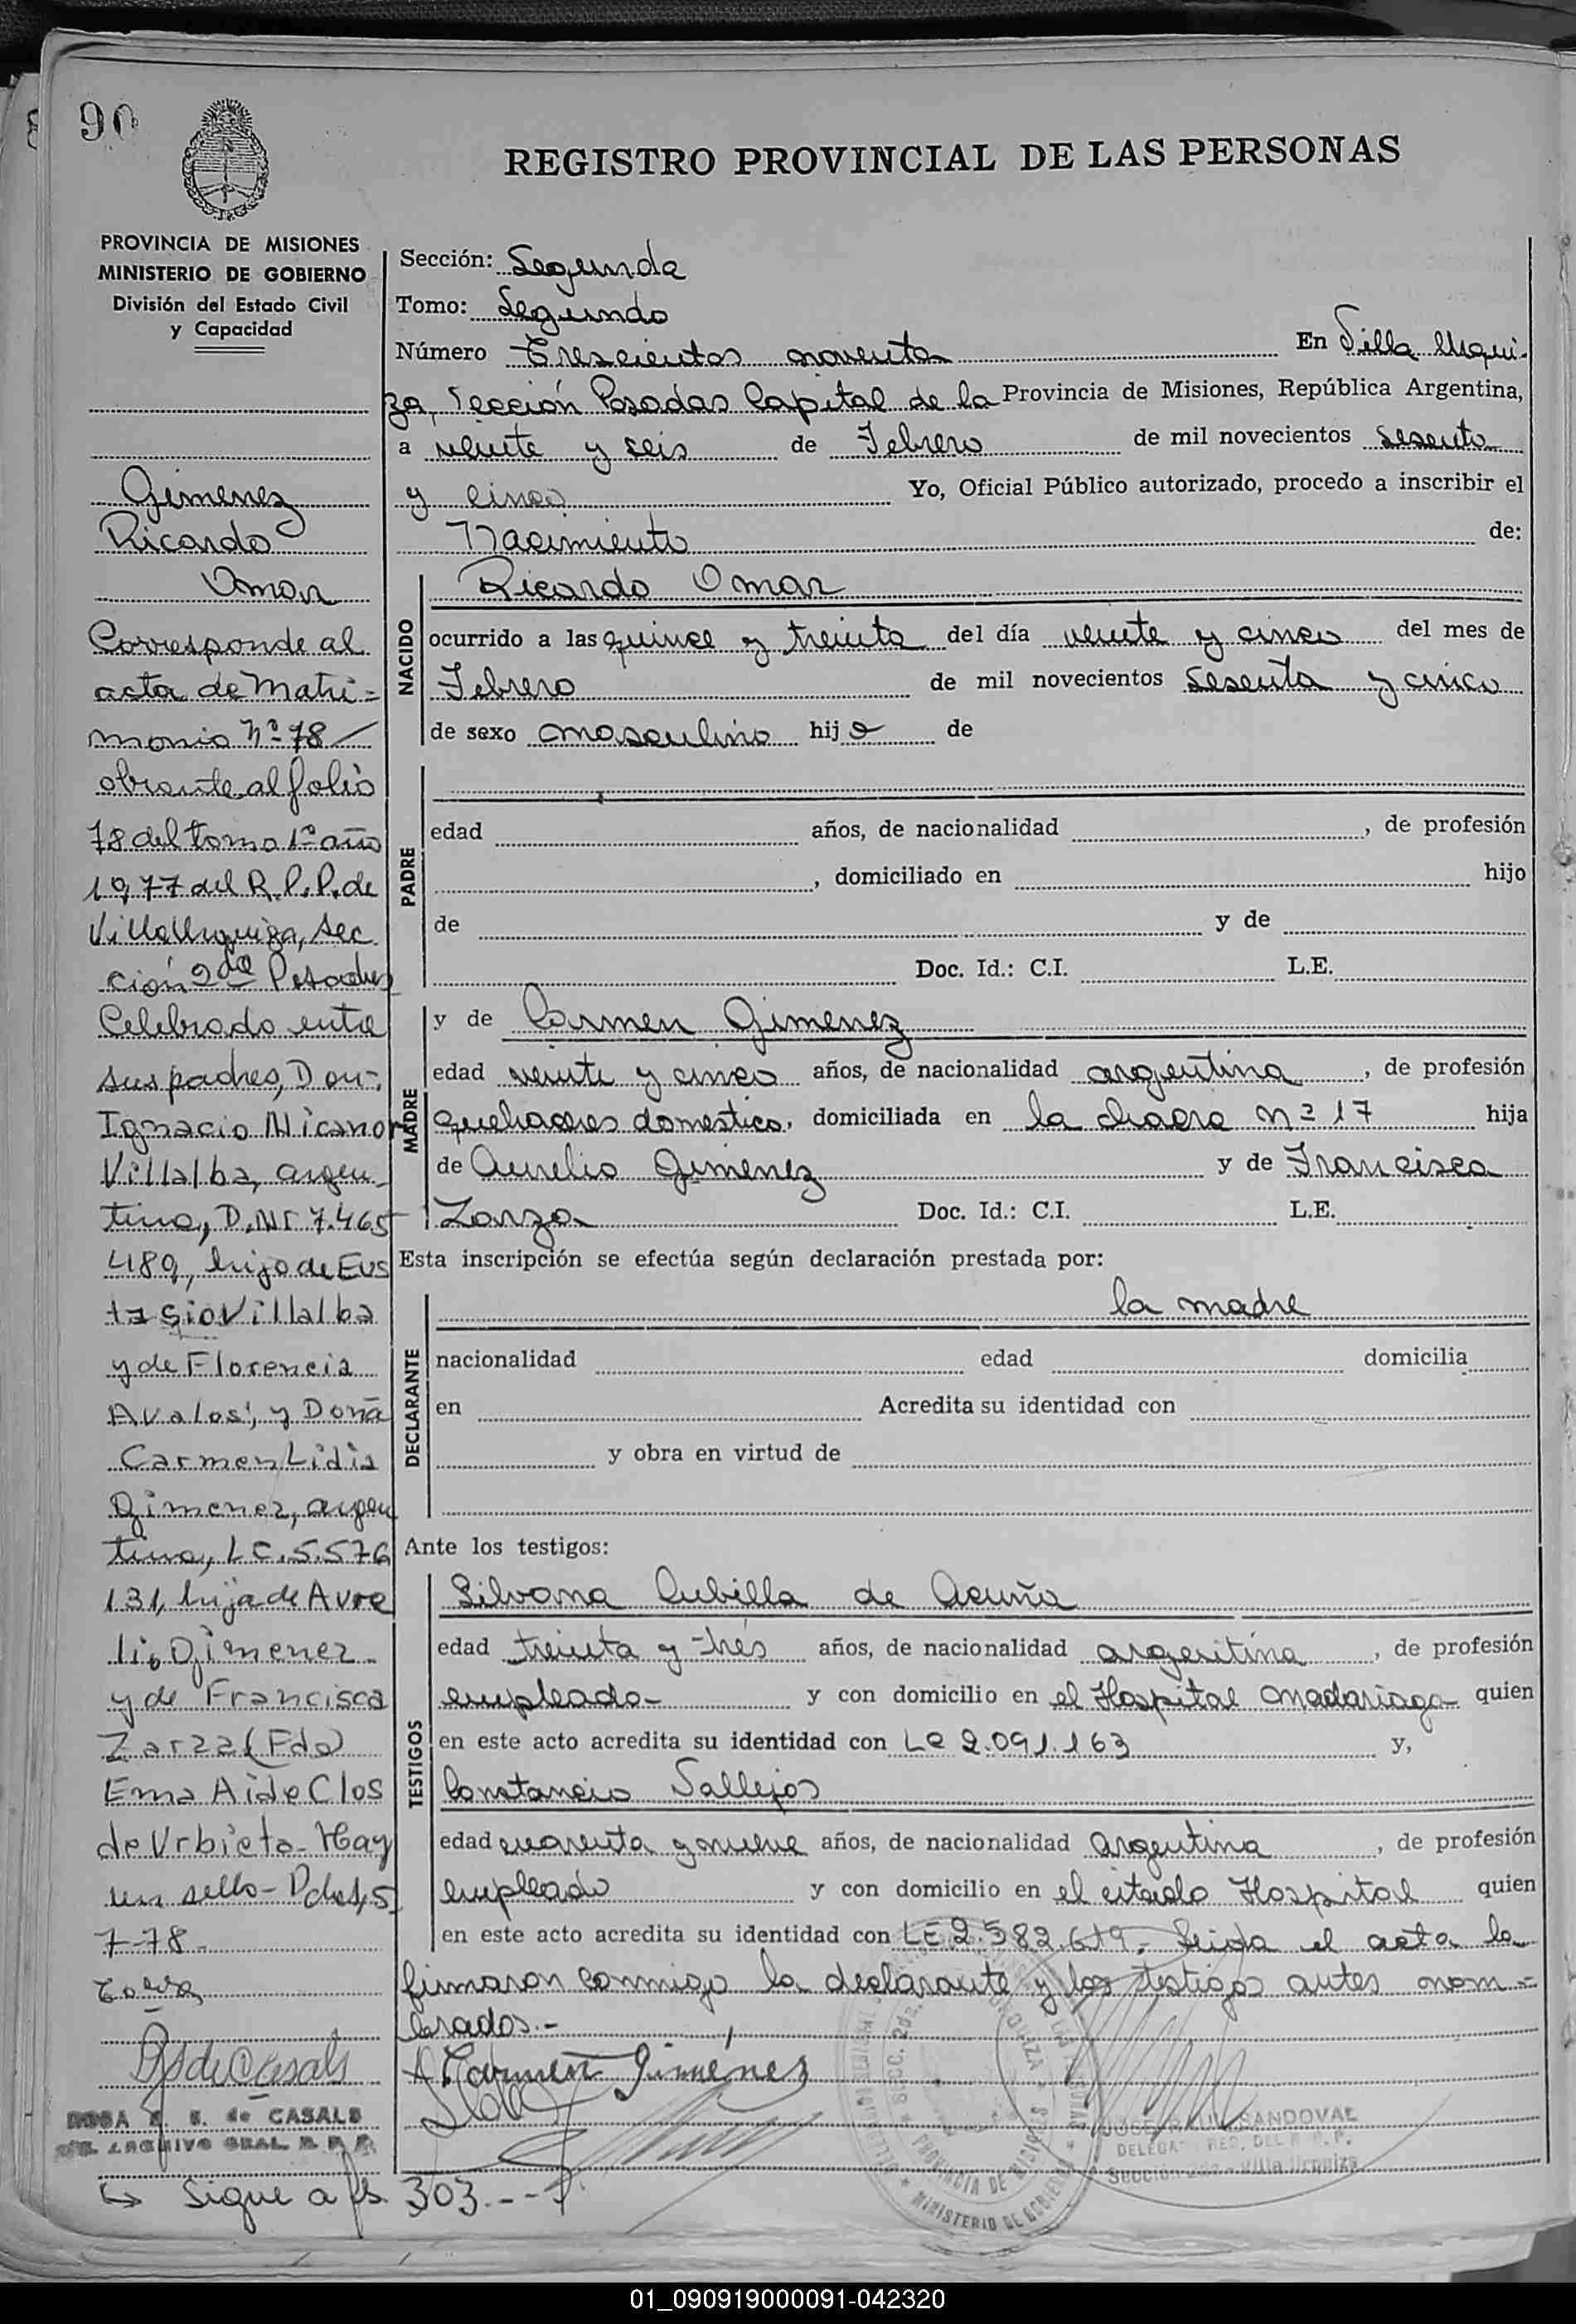 90
REGISTRO PROVINCIAL DE LAS PERSONAS
PROVINCIA DE MISIONES
MINISTERIO DE GOBIERNO
División del Estado Civil
y Capacidad
Gimenez
Ricardo
Omar
Corresponde al
acta de Matri=
monio Nº 78
obrante al folio
78 del tomo 1º año
1977 del R.P.P. de
Villa Urquiza, Sec
ción 2da Posadas
Celebrado entre
sus padres, Don-
Ignacio Nicanor
Villalba, argen-
tino, D.NI 7.465
489, hijo de Eus
tasio Villalba
y de Florencia
Avalos, y Doña
Carmen Lidia
Gimenez, argen
tina, LC. 5.576
131, hija de Aure
lio Gimenez
y de Francisca
Zarza (Fdo)
Ema Aide Clos
de Urbieta- Hay
un sello- Pdas, 5
7-78-
ROSA E. S. de CASALS
ARCHIVO GRAL. R. P. P.
Sigue a fs. 303---
Sección: Segunda
Tomo: Segundo
Número Trescientos noventa En Villa Urqui-
za, Sección Posadas Capital de la Provincia de Misiones, República Argentina,
a veinte y seis de Febrero de mil novecientos sesenta
y cinco Yo, Oficial Público autorizado, procedo a inscribir el
Nacimiento de:
NACIDO
Ricardo Omar
ocurrido a las quince y treinta del día veinte y cinco del mes de
Febrero de mil novecientos sesenta y cinco
de sexo masculino hijo de
PADRE
edad años, de nacionalidad , de profesión
, domiciliado en hijo
de y de
Doc. Id.: C.I. L.E.
MADRE
y de Carmen Gimenez
edad veinte y cinco años, de nacionalidad argentina, de profesión
quehaceres domestico, domiciliada en la chacra Nº 17 hija
de Aurelio Gimenez y de Francisca
Zarza Doc. Id.: C.I. L.E.
Esta inscripción se efectúa según declaración prestada por:
DECLARANTE
la madre
nacionalidad edad domicilia
en Acredita su identidad con
y obra en virtud de
Ante los testigos:
TESTIGOS
Silvana Cubilla de Acuña
edad treinta y tres años, de nacionalidad argentina, de profesión
empleada- y con domicilio en el Hospital Madariaga quien
en este acto acredita su identidad con LC 2.091.163 y,
Constancio Vallejos
edad cuarenta y nueve años, de nacionalidad argentina, de profesión
empleado y con domicilio en el citado Hospital quien
en este acto acredita su identidad con LE 2.582.619.- Leida el acta la
firmaron conmigo la declarante y los testigos antes nom=
brados.-
Carmen Gimenez
SANDOVAL
Sección 2da - Villa Urquiza
PROVINCIA DE MISIONES
MINISTERIO DE GOBIERNO
01_090919000091-042320